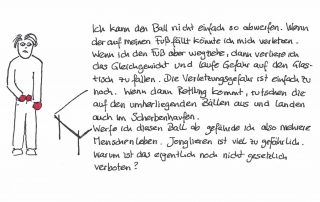 Ich kann den Ball nicht einfach so abwerfen. Wenn
der auf meinen Fuß fällt könnte ich mich verletzen.
Wenn ich den Fuß aber wegziehe, dann verliere ich
das Gleichgewicht und laufe Gefahr auf den Glas-
tisch zu fallen. Die Verletzungsgefahr ist einfach zu
hoch. Wenn dann Rettung kommt, rutschen die
auf den umherliegenden Bällen aus und landen
auch im Scherbenhaufen.
Werfe ich diesen Ball ab gefährde ich also mehrere
Menschenleben. Jonglieren ist viel zu gefährlich.
Warum ist das eigentlich noch nicht gesetzlich
verboten?